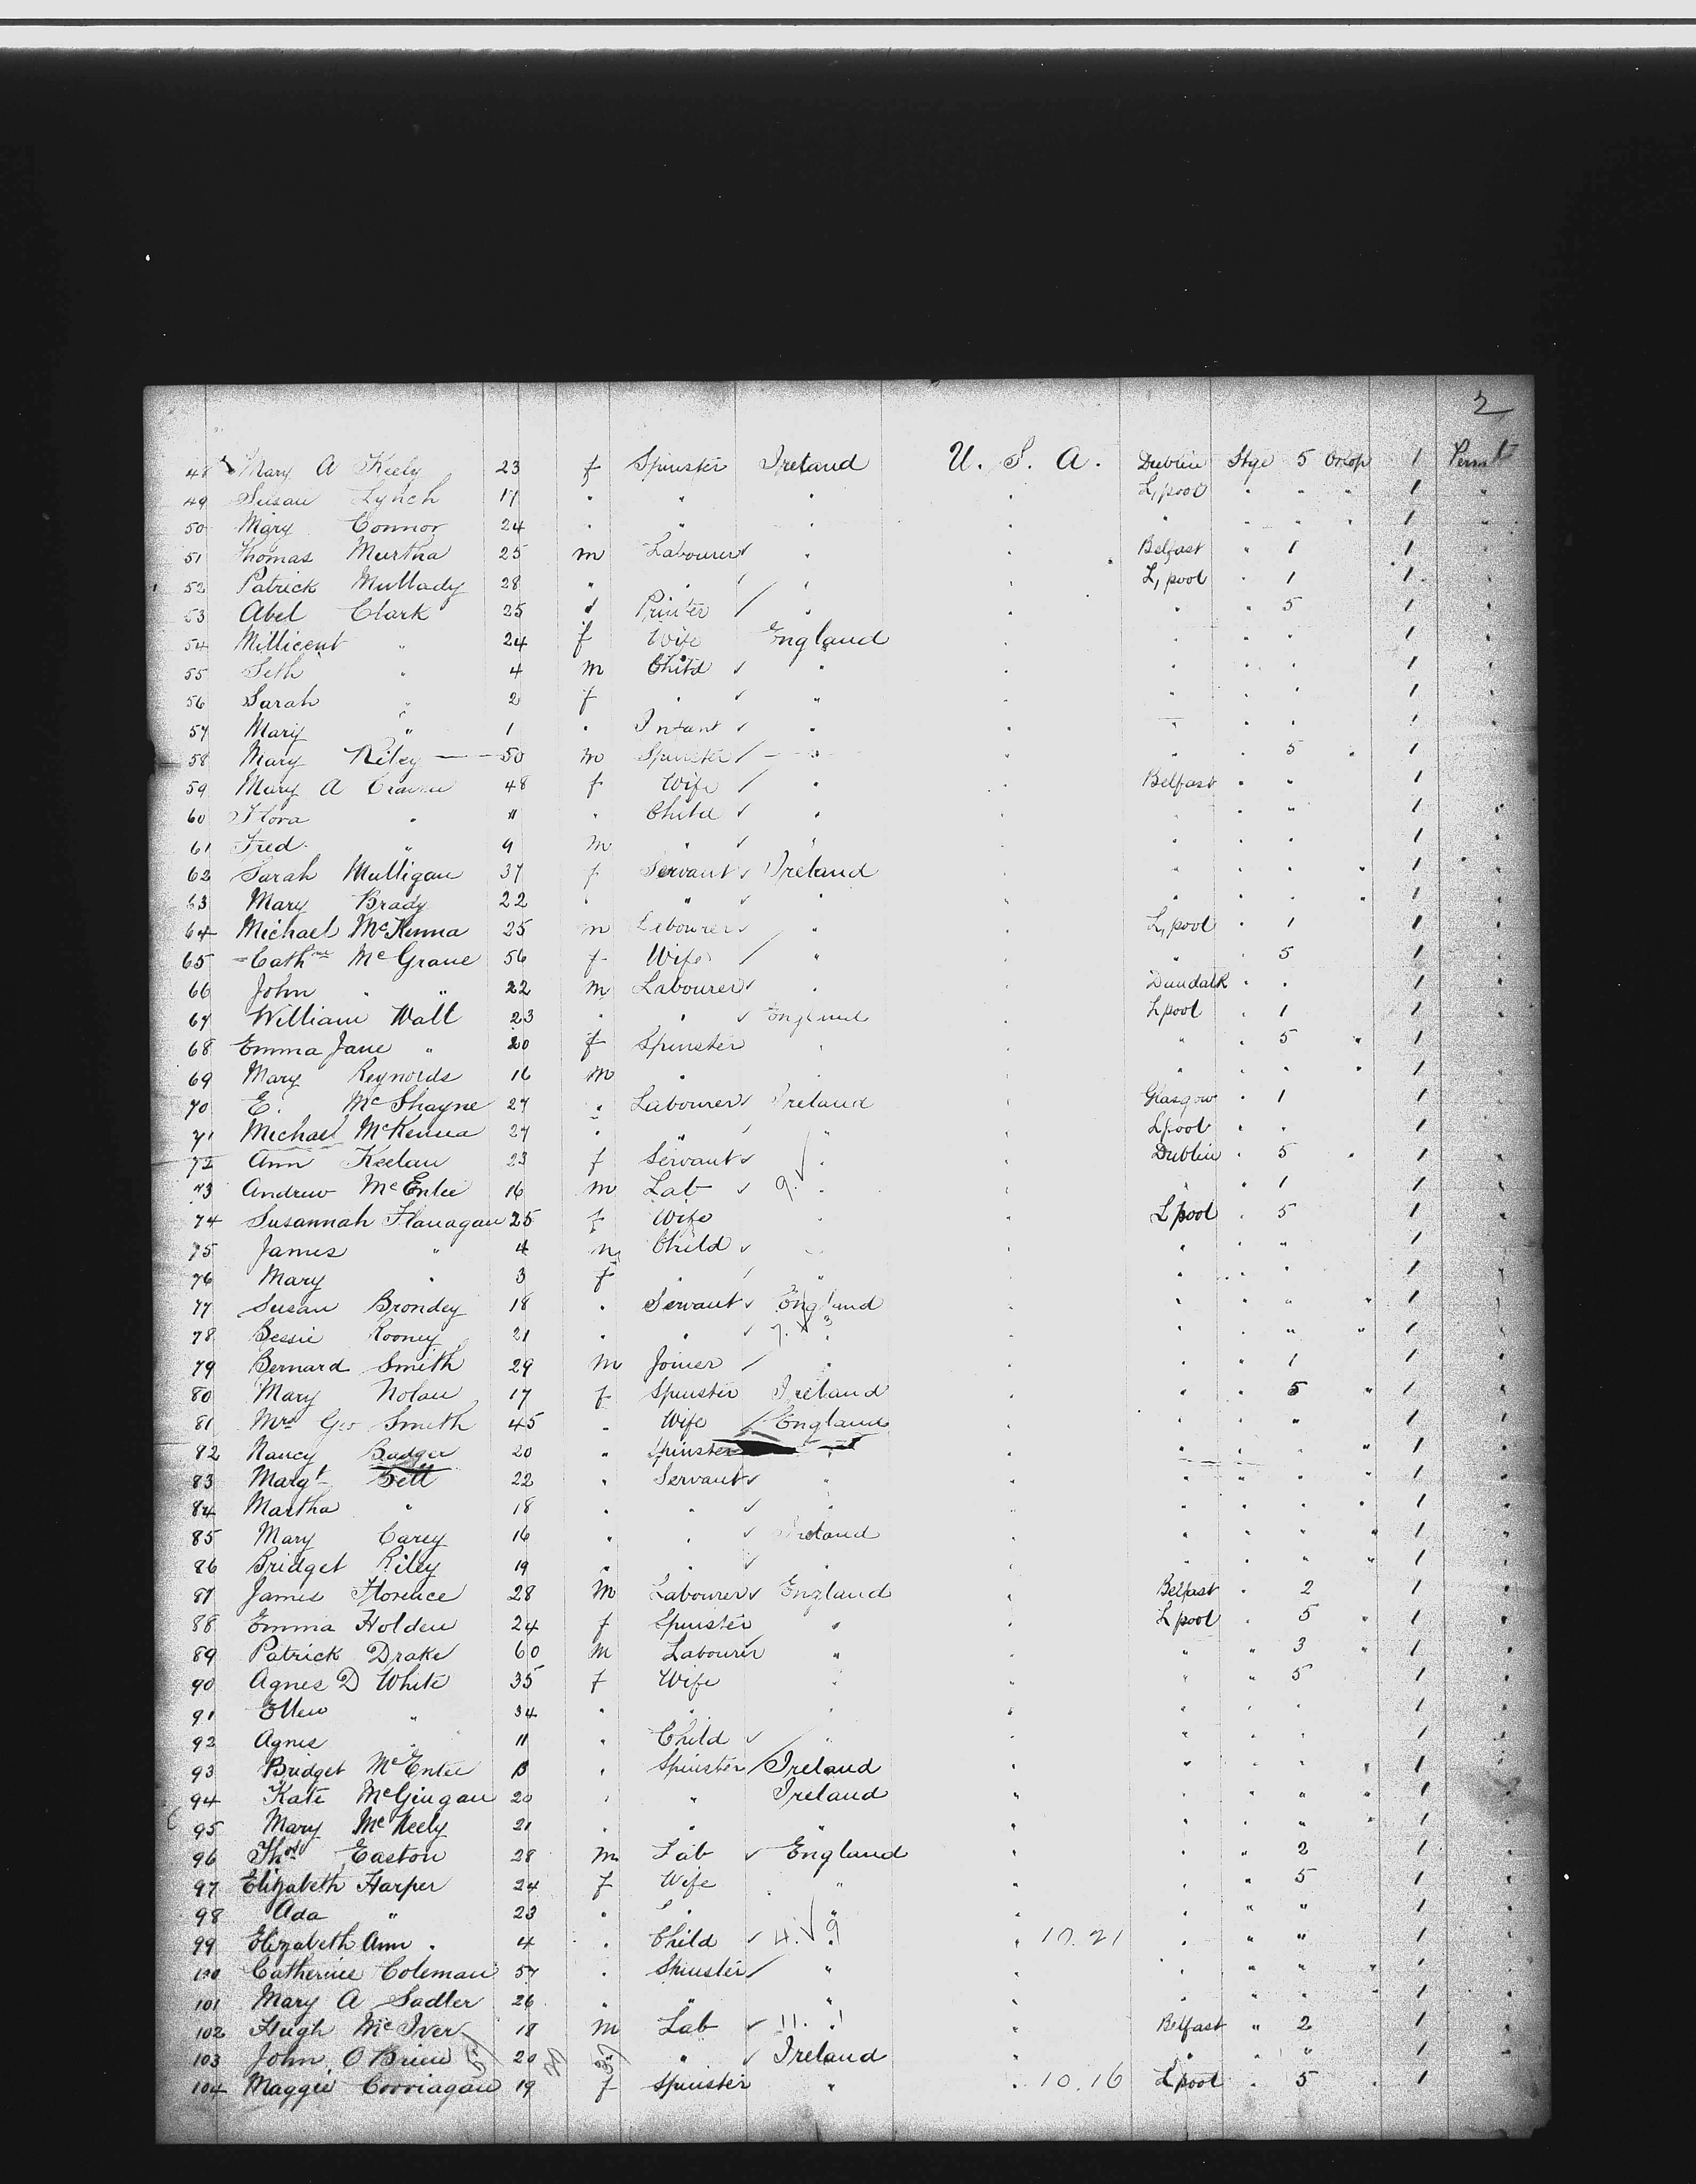 2
48 Mary A Kiely 23 f Spinster Ireland U. S. A. Dublin Stge 5 Orlop 1 Permt
49 Susan Lynch 17 " " " " L,pool " " " 1 "
50 Mary Connor 24 " " " " " " " " 1 "
51 Thomas Murtha 25 m Labourer " " Belfast " 1 1 "
52 Patrick Mullady 28 " " " " L,pool " 1 1 "
53 Abel Clark 25 " Printer " " " " 5 1 "
54 Millicent " 24 f Wife England " " " " 1 "
55 Seth " 4 m Child " " " " " 1 "
56 Sarah " 2 f " " " " " " 1 "
57 Mary " 1 " Infant " " " " " 1 "
58 Mary Riley 50 m Spinster " " " " 5 " 1 "
59 Mary A 48 f Wife " " Belfast " " 1 "
60 Flora " 11 " Child " " " " " 1 "
61 Fred " 9 m " " " " " " 1 "
62 Sarah Mulligan 37 f Servant Ireland " " " " " 1 "
63 Mary Brady 22 " " " " " " " " 1 "
64 Michael McKenna 25 m Labourer " " L,pool " 1 1 "
65 Cathne McGrane 56 f Wife " " " " 5 1 "
66 John " " 22 m Labourer " " Dundalk " " 1 "
67 William Wall 23 " " England " Lpool " 1 1 "
68 Emma Jane " 20 f Spinster " " " " 5 " 1 "
69 Mary Reynolds 16 m " " " " " " " 1 "
70 E. McShayne 27 " Labourer Ireland " Glasgow " 1 1 "
71 Michael McKenna 27 " " " " Lpool " " 1 "
72 Ann Keelan 23 f Servant " " Dublin " 5 " 1 "
73 Andrew McEntee 16 m Lab 9. " " " " 1 1 "
74 Susannah Flanagan 25 f Wife " " Lpool " 5 1 "
75 James " 4 m Child " " " " " 1 "
76 Mary " 3 f " " " " " " 1 "
77 Susan Brondey 18 " Servant England " " " " " 1 "
78 Bessie Rooney 21 " " " " " " " " 1 "
79 Bernard Smith 29 m Joiner " " " " 1 1 "
80 Mary Nolan 17 f Spinster Ireland " " " 5 " 1 "
81 Mrs Geo Smith 45 " Wife England " " " " 1 "
82 Nancy Badger 20 " Spinster " " " " " " 1 "
83 Margt Bell 22 " Servant " " " " " " 1 "
84 Martha " 18 " " " " " " " " 1 "
85 Mary Carey 16 " " Ireland " " " " " 1 "
86 Bridget Riley 19 " " " " " " " " 1 "
87 James Florence 28 m Labourer England " Belfast " 2 1 "
88 Emma Holden 24 f Spinster " " Lpool " 5 " 1 "
89 Patrick Drake 60 m Labourer " " " " 3 " 1 "
90 Agnes D White 35 f Wife " " " " 5 1 "
91 Ellen " 34 " " " " " " " 1 "
92 Agnes " 11 " Child " " " " " 1 "
93 Bridget McEntee " Spinster Ireland " " " " " 1 "
94 Kate McGingan 20 " " Ireland " " " " " 1 "
95 Mary McNeely 21 " " " " " " " " 1 "
96 Thos Easton 28 m Lab England " " " 2 1 "
97 Elizabeth Harper 24 f Wife " " " " 5 1 "
98 Ada " 23 " " " " " " " 1 "
99 Elizabeth Ann " 4 " Child 4. 9 " 10.21 " " " 1 "
100 Catherine Coleman 57 " Spinster " " " " " " 1 "
101 Mary A Sadler 26 " " " " " " " " 1 "
102 Hugh McIver 18 m Lab 11. " " Belfast " 2 1 "
103 John O Brien 20 " " Ireland " " " " 1 "
104 Maggie Corriagan 19 f Spinster " " 10.16 Lpool " 5 " 1